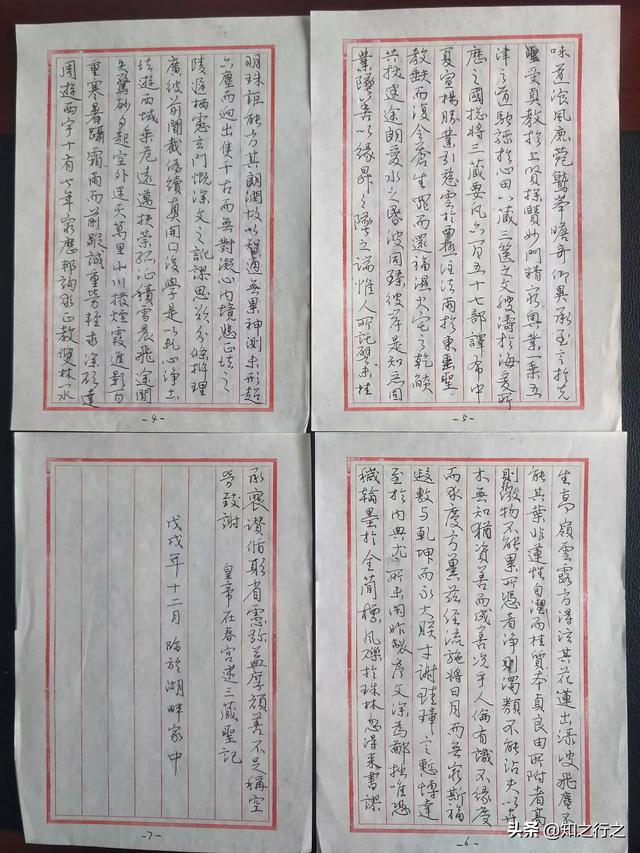 明珠讵能方其朗潤故以智通無累神測未形超
六塵而迥出隻千古而無對凝心内境悲正法之
陵遲栖慮玄門慨深文之訛謬思欲分條析理
廣彼前聞截偽續真開後學是以翹心淨土
法遊西域乘危遠邁杖策孤征積雪晨飛途閒
失驚砂夕起空外迷天萬里山川撥煙霞進影百
重寒暑躡霜雨而前蹤誠重勞輕求深願達
周遊西宇十有七年窮歷邦詢求正教雙林八水
-4-
味道湌風鹿菀鷲峯瞻奇仰異承至言於先
聖受真教於上賢探賾妙門精窮奧業一乘五
律之道馳驟於心田八藏三篋之文波濤於海爰所
歷之國惣將三藏要凡六百五十七部譯布中
夏宣揚勝業引慈雲於西極注法雨於東垂聖
教缺而復全蒼生罪而還福濕火宅之乾燄
共拔迷途朗愛水之昏波同臻彼岸是知惡因
業墜善以緣昇之墜之端惟人所託譬夫桂
-5-
生高嶺雲露方得泫其花蓮出淥波飛塵不
能其葉非蓮性自潔而桂質本貞良由所附者高
則微物不能累所憑者淨則濁類不能沾夫以卉
木無知猶資善而成善況乎人倫有識不緣慶
而求慶方冀茲經流施將日月而無窮斯福
遐敷与乾坤而永大朕才謝珪璋言慙博達
至於内典尤所未閑昨製序文深為鄙拙唯恐
穢翰墨於金簡標瓦礫於珠林忽得來書謬
-6-
承褒讚循躬省慮弥益厚顔善不足稱空
勞致謝 皇帝在春宮述三藏聖記
戊戌年十二月 临於湖畔家中
-7-
头条 @知之行之